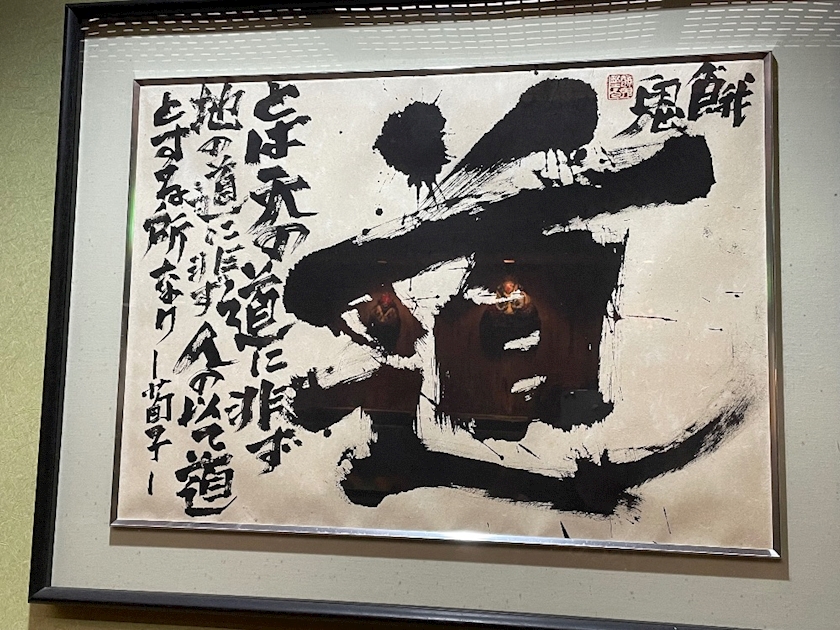 餓鬼
道
とは天の道に非ず
地の道に非ず人の以て道
とする所なり ー荀子ー